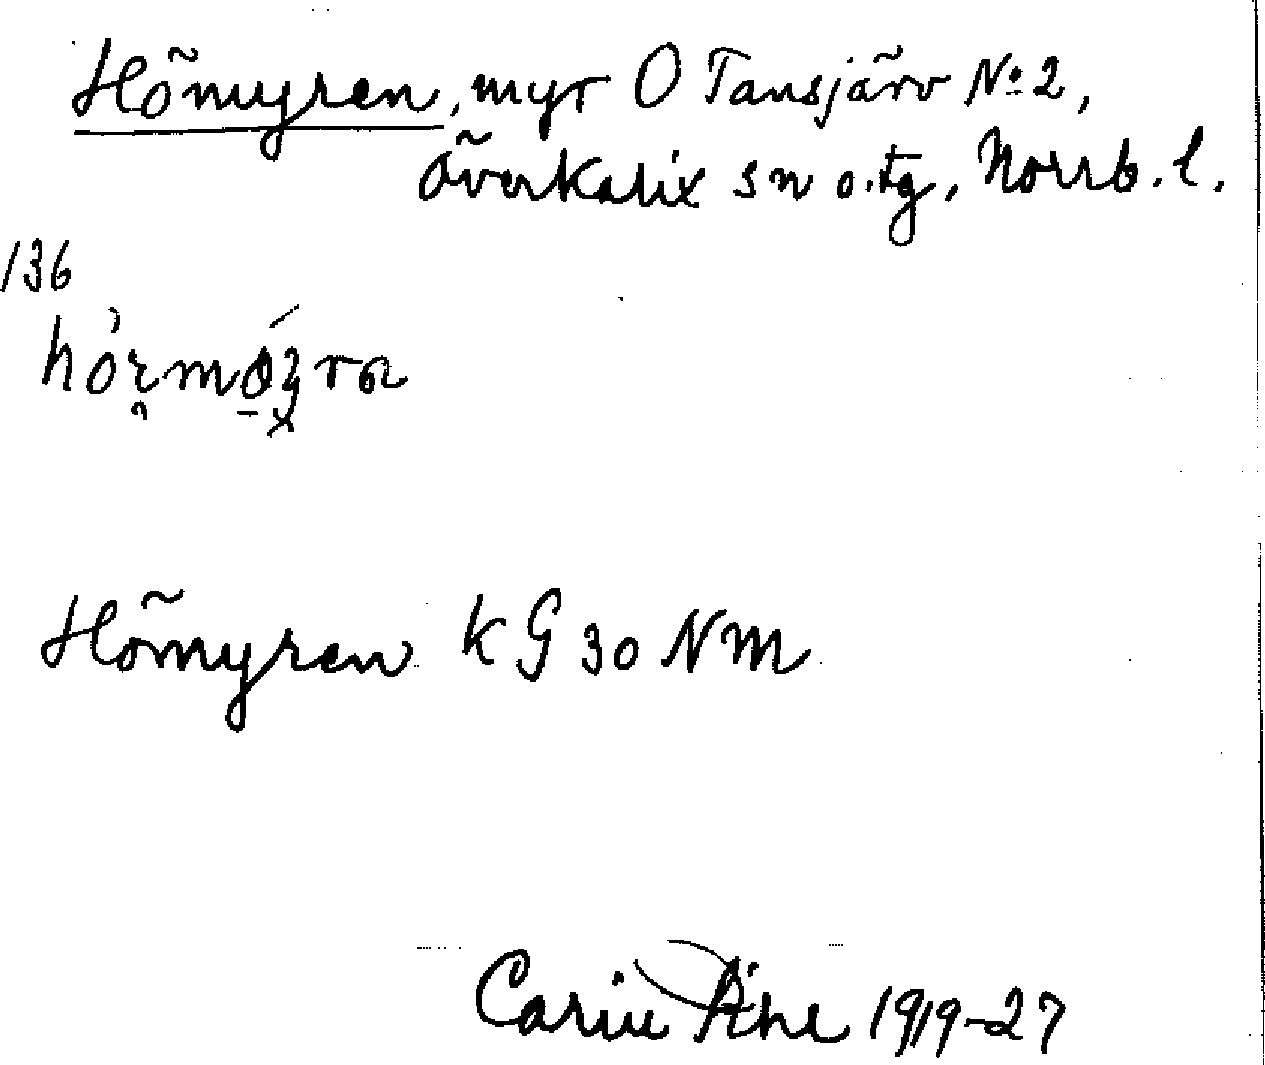 Hömyren, myr Ö Tansjärv No 2,
Överkalix sn o. tg, Norrb. l.
136
Hömyren KG 30 NM
Carin Pihl 1919-27